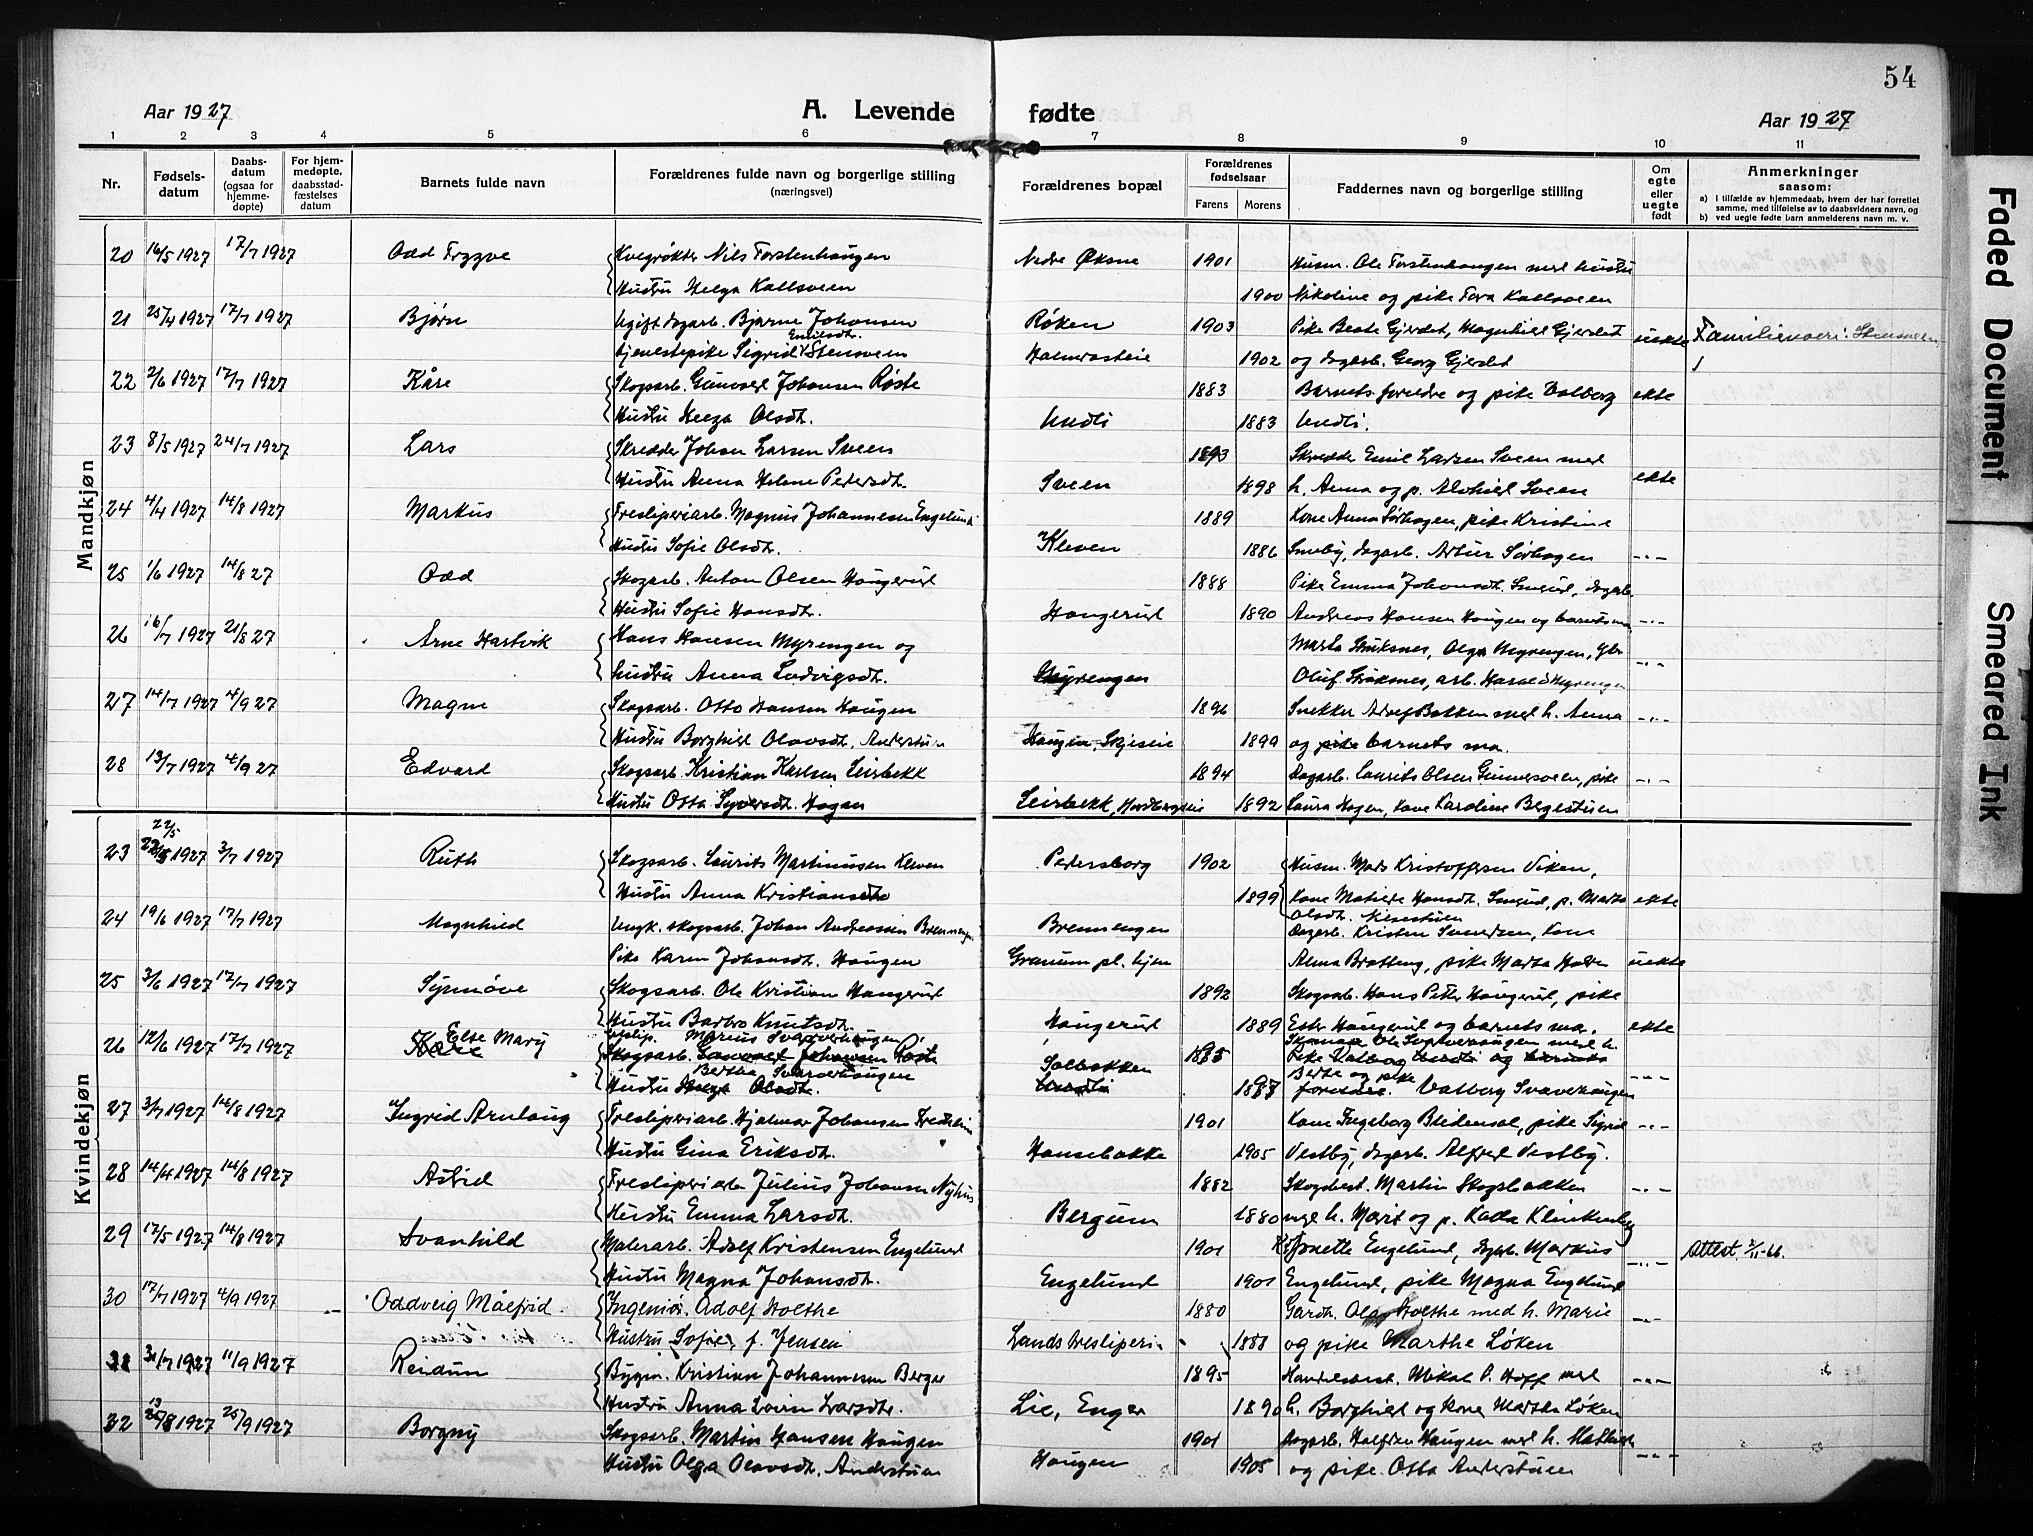 54
Aar 1927
A. Levende fødte
Aar 1927
1 2 3 4 5 6 7 8 9 10 11
Nr.
Fødsels-datum
Daabs-datum (ogsaa for hjemme-døpte)
For hjem-medøpte, daabsstad-fæstelses datum
Barnets fulde navn
Forældrenes fulde navn og borgerlige stilling (næringsvei)
Forældrenes bopæl
Forældrenes fødselsaar
Farens
Morens
Faddernes navn og borgerlige stilling
Om egte eller uegte født
Anmerkninger saasom:
a) i tilfælde av hjemmedaab, hvem der har forrettet samme, med tilføielse av to daabsvidners navn, og
b) ved uegte fødte barn anmelderens navn m. v.
Mandkjøn
20 16/5 1927 17/7 1927 Odd Trygve Kvegrøkter Nils Torstenhaugen Nedre Øksne 1901 Husm. Ole Torstenhaugen med hustru
Hustru Helga Kallsveen 1900 Nikoline og pike Tora Kallsveen
21 25/4 1927 17/7 1927 Bjørn Ugift dagarb. Bjarne Johansen Røken 1903 Pike Beate Gjerdet, Magnhild Gjerdet uekte Familienavn: Stensveen
tjenestepike Sigrid Emilsdt. Stensveen 1902 og dagarb. Georg Gjerdet
22 2/6 1927 17/7 1927 Kåre Skogsarb. Gunvald Johansen Røste 1883 Barnets foreldre og pike Valborg ekte
Hustru Helga Olsdt. Undli 1883 Undli.
23 8/5 1927 24/7 1927 Lars Skredder Johan Larsen Sveen 1893 Skredder Emil Larsen Sveen med
Hustru Anna Helene Petersdt. Sveen 1898 h. Anna og p. Alvhild Sveen ekte
24 4/4 1927 14/8 1927 Markus Tresliperiarb. Magnus Johannesen Engelund 1889 Kone Anna Sørhagen, pike Kristine
Hustru Sofie Olsdt. Kleven 1886 Smeby, dagarb. Artur Sørhagen -"-
25 1/6 1927 14/8 27 Odd Skogarb. Anton Olsen Haugerud 1888 Pike Emma Johansdt. Smerud, dagarb.
Hustru Sofie Hansdt. Haugerud 1890 Andreas Hansen Haugen og barnets mor -"-
26 16/7 1927 21/8 27 Arne Hartvik Hans Hansen Myrengen og Marta Struksnes, Olga Myrengen, gbr
hustru Anna Ludvigsdt. Myrengen Oluf Struksnes, arb. Harald Myrengen -"-
27 14/7 1927 4/9 27 Magne Skogsarb. Otto Hansen Haugen 1896 Snekker Adolf Bakken med h. Anna -"-
Hustru Borghild Olavsdt. Anderstuen Haugen, Skjeseie 1899 og pike barnets mor.
28 13/7 1927 4/9 27 Edvard Skogsarb. Kristian Karlsen Leirbekk 1894 Dagarb. Laurits Olsen Gunnersveen, pike -"-
Hustru Otta Syversdt. Hagen Leirbekk, 1892 Laura Hagen, kone Karoline Bergestuen
Kvindekjøn
23 22/5 1927 3/7 1927 Ruth Skogsarb. Laurits Martinussen Kleven Petersborg 1902 Husm. Mads Kristoffersen Viken,
Hustru Anna Kristiansdtr 1899 Kone Matilde Hansdt. Smerud, p. Marta ekte
Olsdt. Nisestuen
24 19/6 1927 17/7 1927 Magnhild Ungk. skogsarb. Johan Andreassen Brennengen Brennengen Dagarb. Kristen Svendsen, Kone
Pike Karen Johansdt. Haugen Granum pl. hjem Anna Bratteng, pike Marta uekte
25 3/6 1927 17/7 1927 Synnøve Skogsarb. Ole Kristian Haugerud 1892 Skogsarb. Hans Peter Haugerud, pike
Hustru Barbro Knutsdt. Haugerud 1889 Ester Haugerud og barnets mor. ekte
26 12/6 1927 17/7 1927 Else Mary Marius Svarverhaugen 1895 Ole Svarverhaugen med h.
Bertha Svarverhaugen Solbakken 1887 Berte og pike Valborg Svarverhaugen -"-
27 3/7 1927 14/8 1927 Ingrid Arnlaug Tresliperiarb. Hjalmar Johansen Fredheim 1901 Kone Ingeborg Bleidensol, pike Sigrid -"-
Hustru Gina Eriksdt. Hansebakke 1905 Vestby, dagarb. Alfred Vestby.
28 14/4 1927 14/8 1927 Astrid Tresliperiarb. Julius Johansen Nyhus 1882 Skogsbest. Martin Skogsbakken -"-
Hustru Emma Larsdt. Bergum 1880 med h. Marit og p. Kalla Klinkenberg
29 17/5 1927 14/8 1927 Svanhild Malerarb. Adolf Kristensen Engelund 1901 Josette Engelund, dagarb. Markus -"- Attest 2/11-66.
Hustru Magna Johansdt. Engelund 1901 Engelund, pike Magna Engelund
30 17/7 1927 4/9 1927 Oddveig Målfrid Ingeniør Adolf Holthe 1880 Gardb. Olav Holthe med h. Marie -"-
Hustru Sofie, f. Jensen Lands tresliperi 1888 og pike Marthe Løken
31 31/7 1927 11/9 1927 Reidun Bygm. Kristian Johannesen Berger 1895 Handelsbest. Mikal P. Hoff med -"-
Hustru Anna Lovise Larsdt. Lie, Enger 1890 h. Borghild og kone Martha Løken
32 13/8 1927 25/9 1927 Borgny Skogsarb. Martin Hansen Haugen 1901 Dagarb. Halfdan Haugen med h. Mathilde
Hustru Olga Olavsdt. Anderstuen Haugen 1905 og pike Otta Anderstuen -"-
Faded Document
Smeared Ink